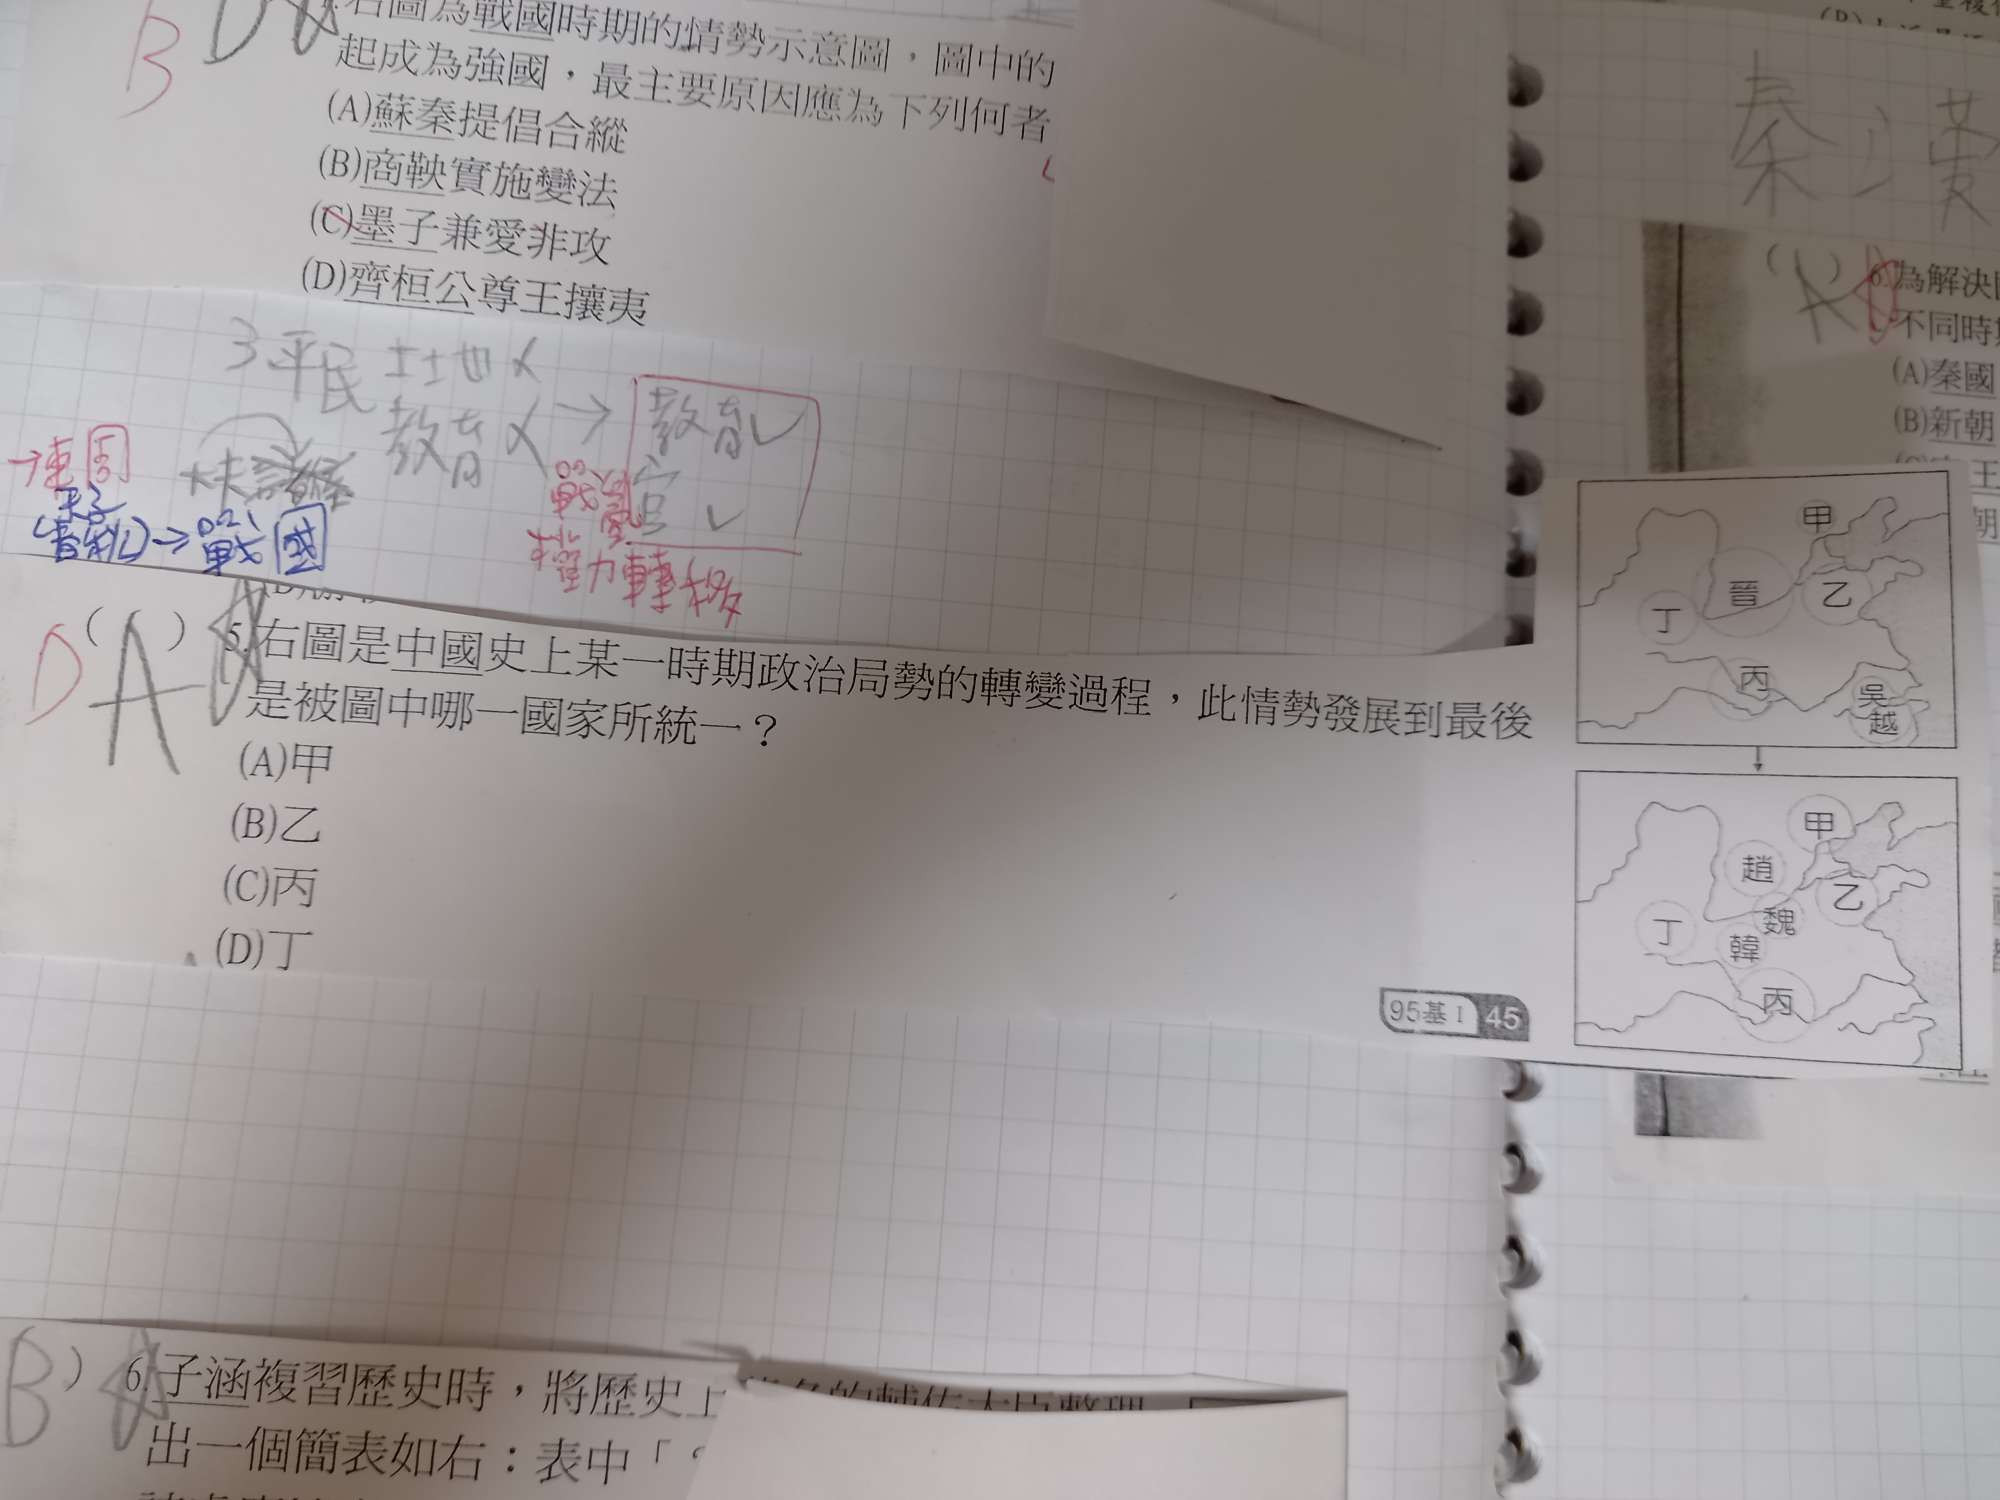 右圖為戰國時期的情勢示意圖，圖中的
起成為強國，最主要原因應為下列何者
(A)蘇秦提倡合縱
(B)商鞅實施變法
(C)墨子兼愛非攻
(D)齊桓公尊王攘夷
B
3平民 土地×
教育× → 教育✓
官 ✓
→東周
大夫
→戰國
戰國
權力轉移
D (A) 5.右圖是中國史上某一時期政治局勢的轉變過程，此情勢發展到最後
是被圖中哪一國家所統一？
(A)甲
(B)乙
(C)丙
(D)丁
95基I 45
甲
晉
乙
丁
丙
吳
越
甲
趙
乙
魏
丁
韓
丙
B) 6.子涵複習歷史時，將歷史上
出一個簡表如右：表中「
秦
(A) 6.為解決
不同時
(A)秦國
(B)新朝
王
朝